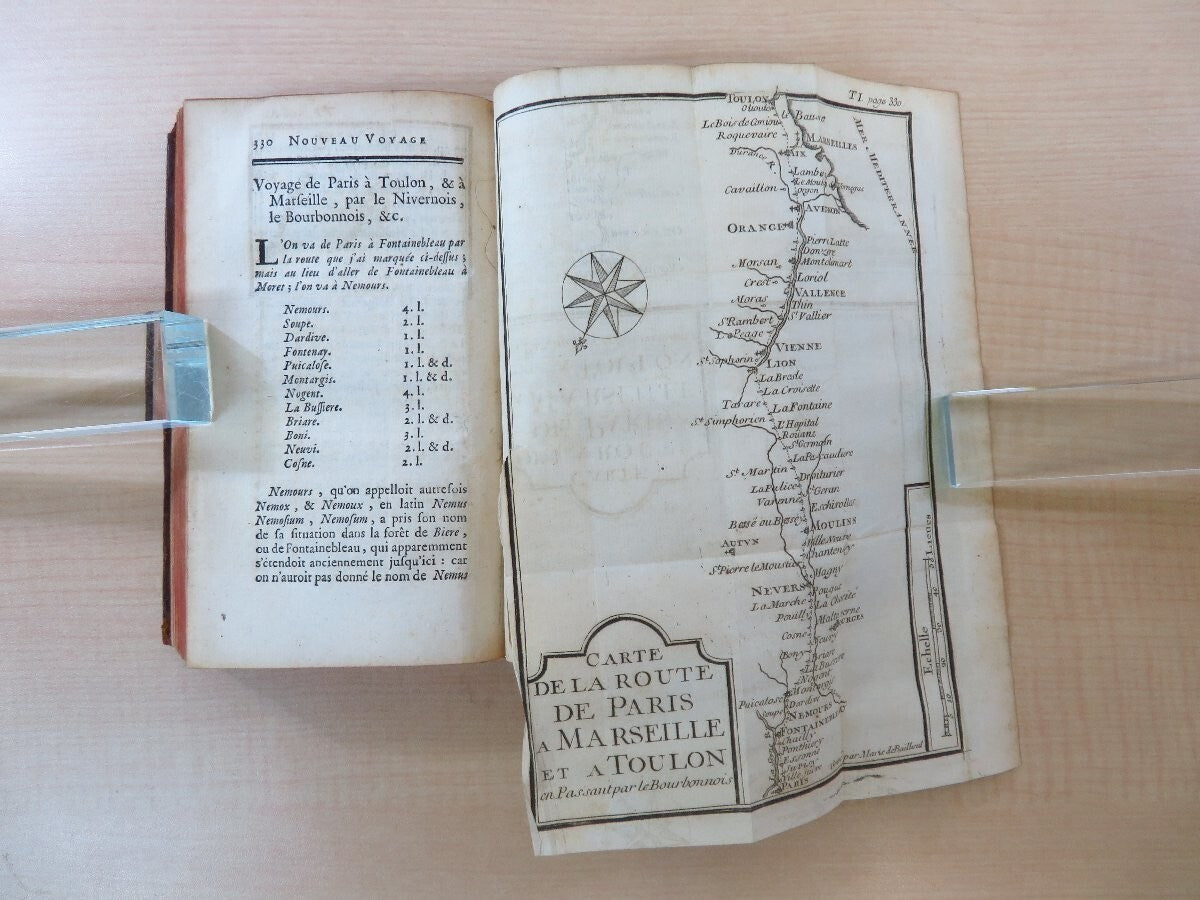 330 NOUVEAU VOYAGE
Voyage de Paris à Toulon, & à
Marseille, par le Nivernois,
le Bourbonnois, &c.
L'On va de Paris à Fontainebleau par
la route que j'ai marquée ci-dessus ;
mais au lieu d'aller de Fontainebleau à
Moret ; l'on va à Nemours.
Nemours. 4. l.
Soupe. 2. l.
Dardive. 1. l.
Fontenay. 1. l.
Puicalose. 1. l. & d.
Montargis. 1. l. & d.
Nogent. 4. l.
La Bussiere. 3. l.
Briare. 2. l. & d.
Boni. 3. l.
Neuvi. 2. l. & d.
Cosne. 2. l.
Nemours, qu'on appelloit autrefois
Nemox, & Nemoux, en latin Nemus
Nemosum, Nemosum, a pris son nom
de sa situation dans la forêt de Biere,
ou de Fontainebleau, qui apparemment
s'étendoit anciennement jusqu'ici : car
on n'auroit pas donné le nom de Nemus
T I. page 330
TOULON
Olioules
Bausse
Roquevaire
MARSEILLES
MER MEDITERRANNEE
Durance R.
AIX
Lambesc
Cavaillon
Orgon
AVIGNON
ORANGE
PierrLatte
Donzere
Morsan
Montelimart
Crest
Loriol
VALLENCE
Moras
Thin
St Vallier
St Rambert
Le Peage
VIENNE
St Saphorin
LION
La Bresle
La Croisette
Tarare
La Fontaine
St Simphorien
L'Hopital
Rouane
St Germain
La Pacaudiere
St Martin
Droiturier
La Palice
St Geran
Varenne
Eschirolles
Bessé ou Bessey
MOULINS
AUTUN
Ville Neuve
Chantenay
St Pierre le Moustier
Magny
NEVERS
Pougue
La Marche
La Charité
Pouilly
Maltaverne
Cosne
Neuvy
Bony
Briare
La Bussiere
Nogent
Montargis
Puicalose
Dardive
Soupe
NEMOURS
FONTAINEBLEAU
Chailly
Ponthiery
Essonne
Ville Juive
PARIS
Echelle
Lieues
par Marie de Bailleul
CARTE
DE LA ROUTE
DE PARIS
A MARSEILLE
ET A TOULON
en Passant par le Bourbonnois